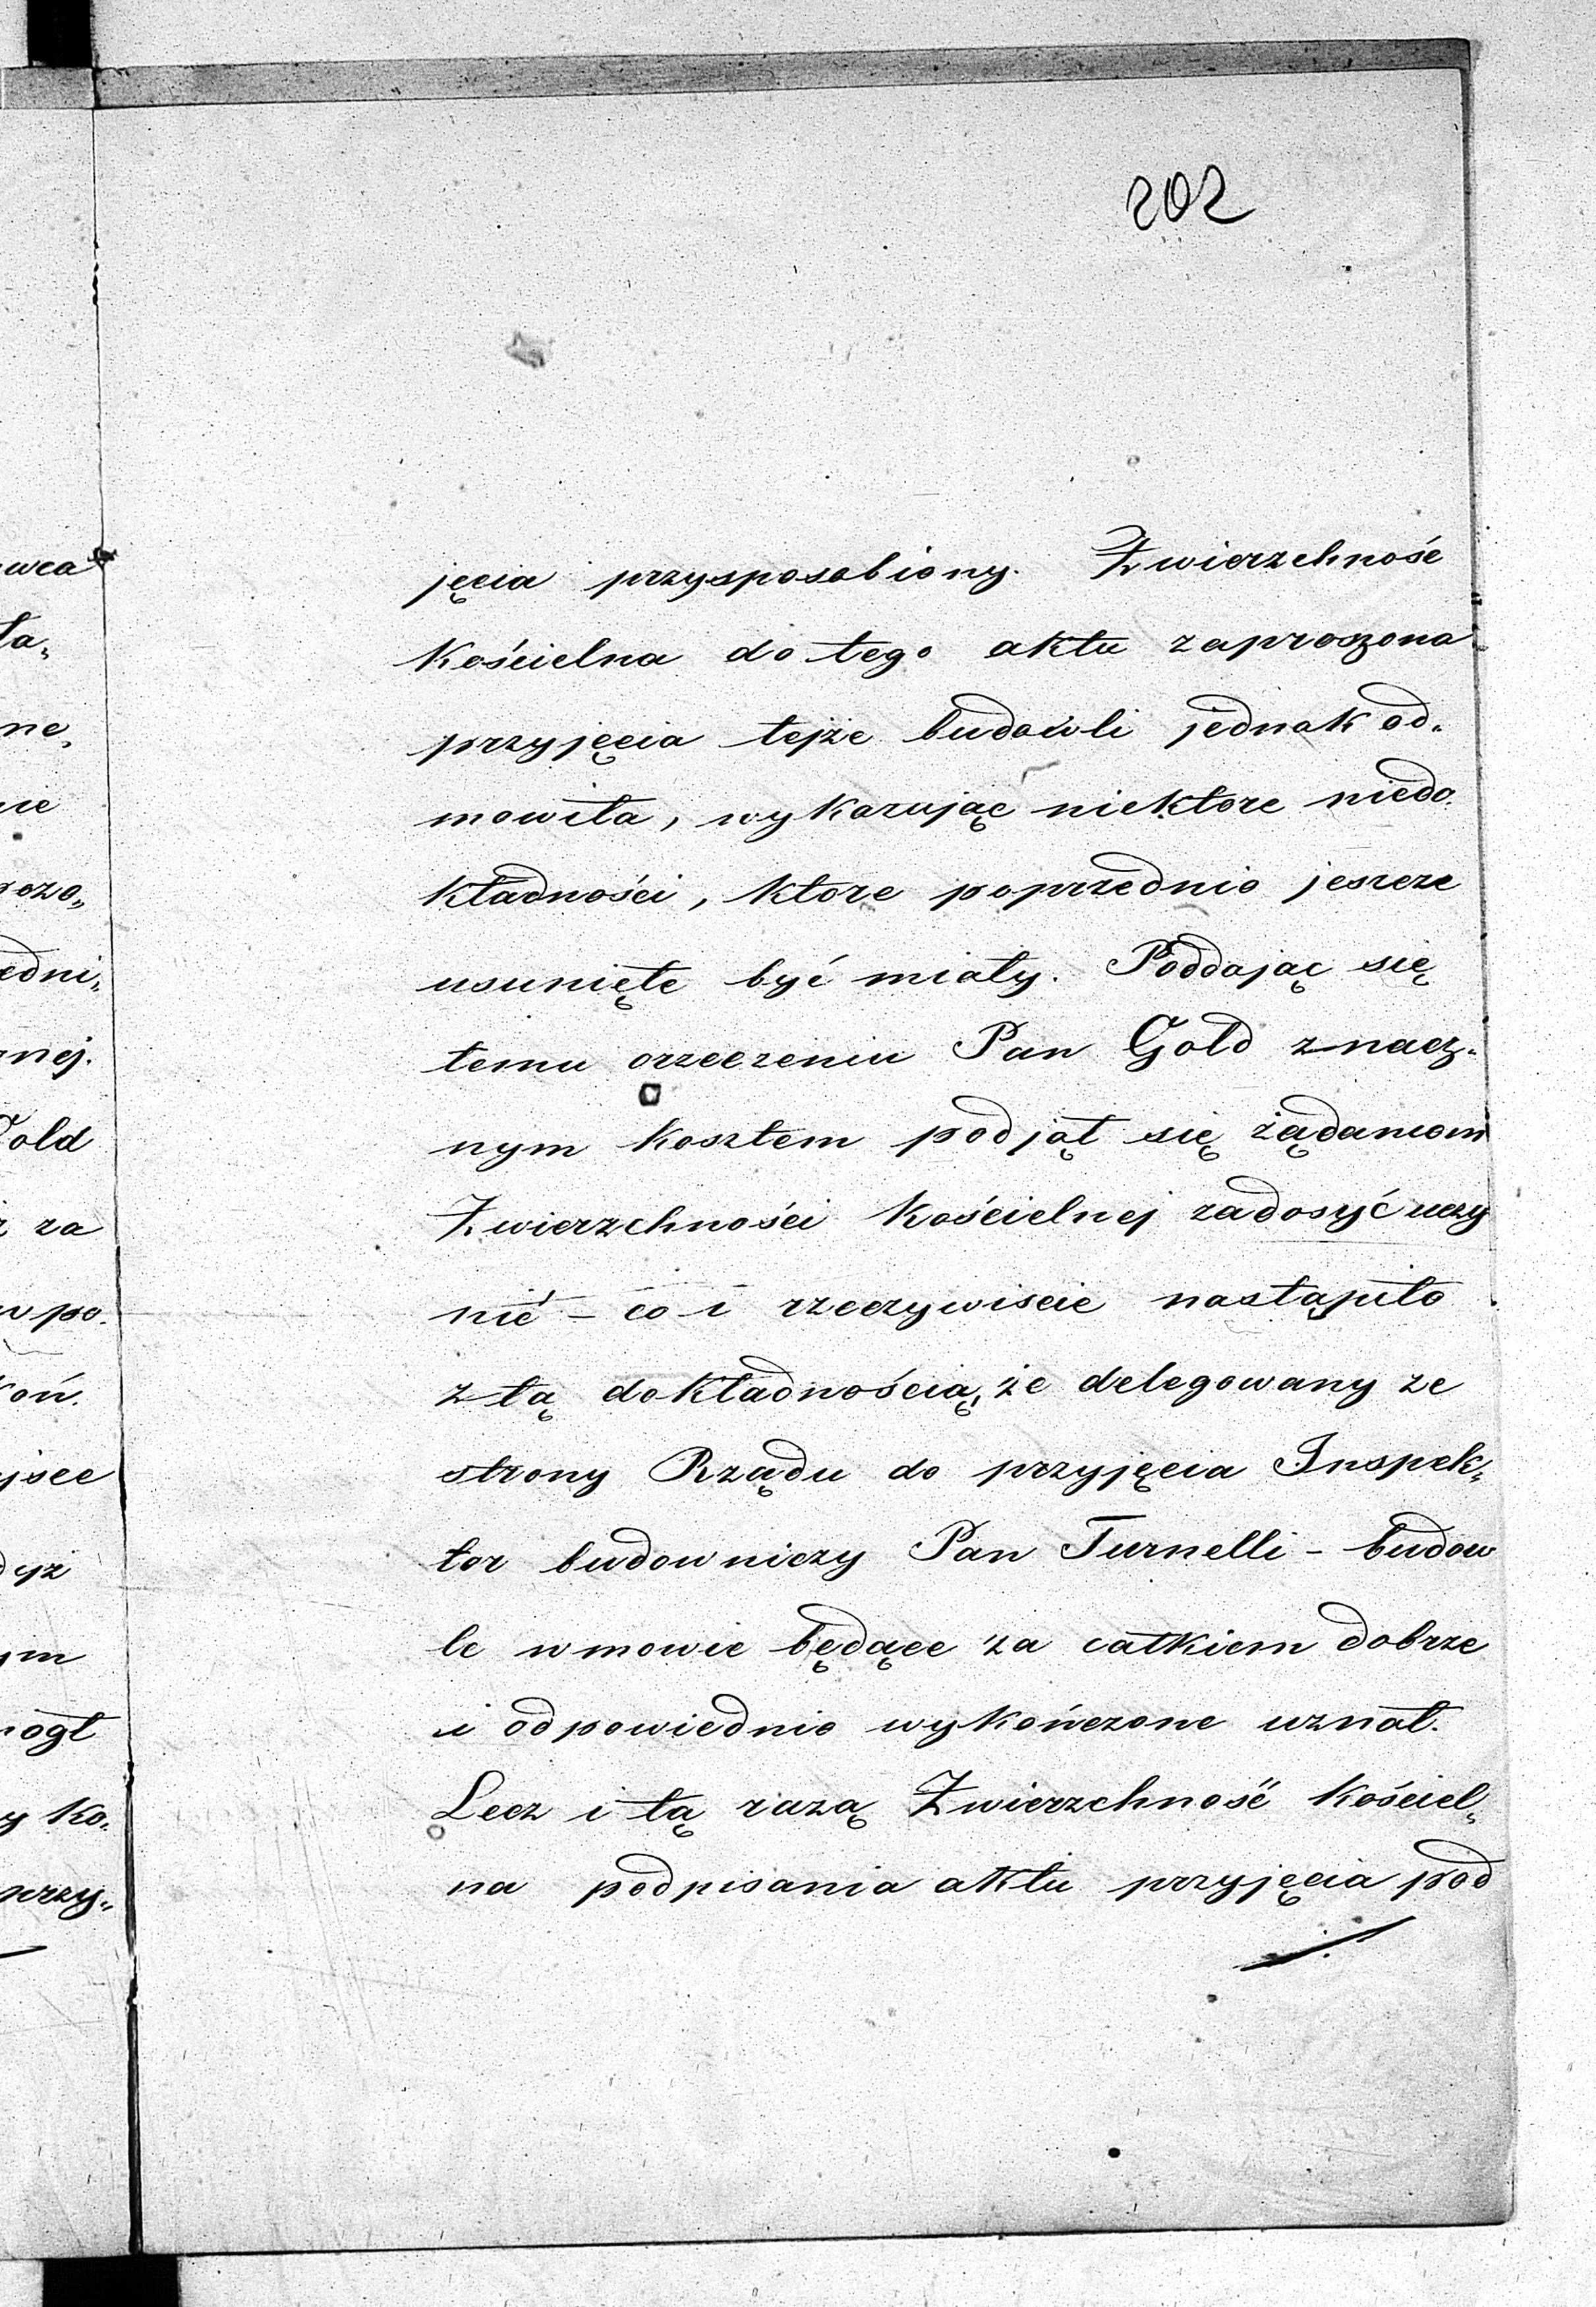 202
jęcia przysposobiony. Zwierzchność
Kościelna do tego aktu zaproszona
przyjęcia tejże budowli jednak od„
mowiła, wykazując niektore niedo„
kładności, ktore poprzednio jeszcze
usunięte być miały. Poddając się
temu orzeczeniu Pan Gold znacz„
nym kosztem podjął się żądaniom
Zwierzchności Kościelnej zadosyć uczy
nić – co i rzeczywiscie nastąpiło
z tą dokładnością, że delegowany ze
strony Rządu do przyjęcia Inspek„
tor budowniczy Pan Turnelli – budow
le w mowie będące za całkiem dobrze
i odpowiednio wykończone uznał.
Lecz i tą razą Zwierzchność Kościel„
na podpisania aktu przyjęcia pod
wca
ła„
ne„
ie
ozo„
edni„
nej.
Gold
za
w po„
koń„
jsce
dyż
ym
mogł
y Ko„
przy„